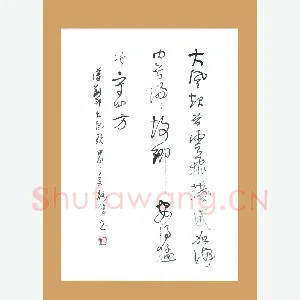 大風起兮雲飛揚威加海
内兮歸故鄉安得猛
士守四方
劉邦大風歌
Shufawang.CN